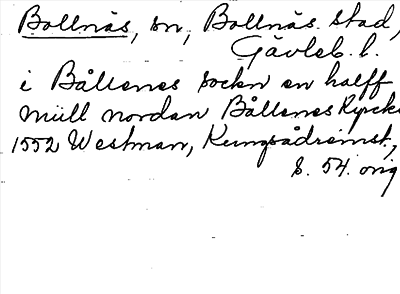 Bollnäs, sn, Bollnäs stad,
Gävleb. l.
i Bållenes sockn en halff
miill nordan Bållenes Kyrcke
1552 Westman, Kungsådreinst.,
s. 54. orig